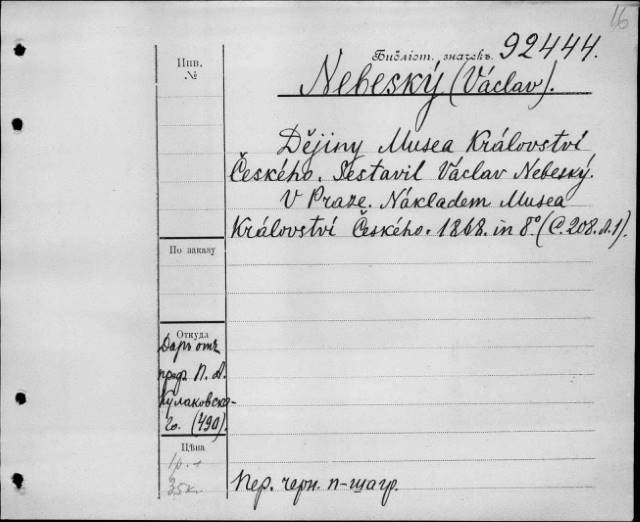 16
Библіот. значекъ. 92444.
Инв.
№
Nebeský (Václav).
Dějiny Musea Království
Českého. Sestavil Václav Nebeský.
V Praze. Nákladem Musea
Království Českého. 1868. in 8º (C. 208. л. 1).
По заказу
Откуда
Даръ отъ
проф. П. А.
Кулаковска-
го. (490).
Цѣна
1 р. +
35 к.
Пер. черн. п-шагр.